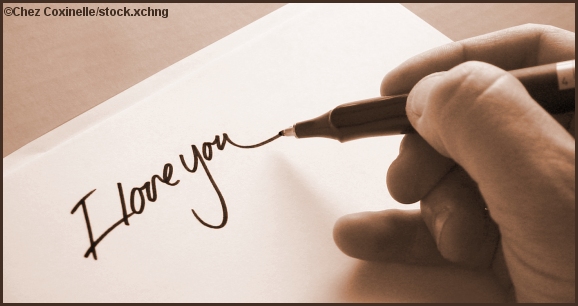 ©Chez Coxinelle/stock.xchng
I love you